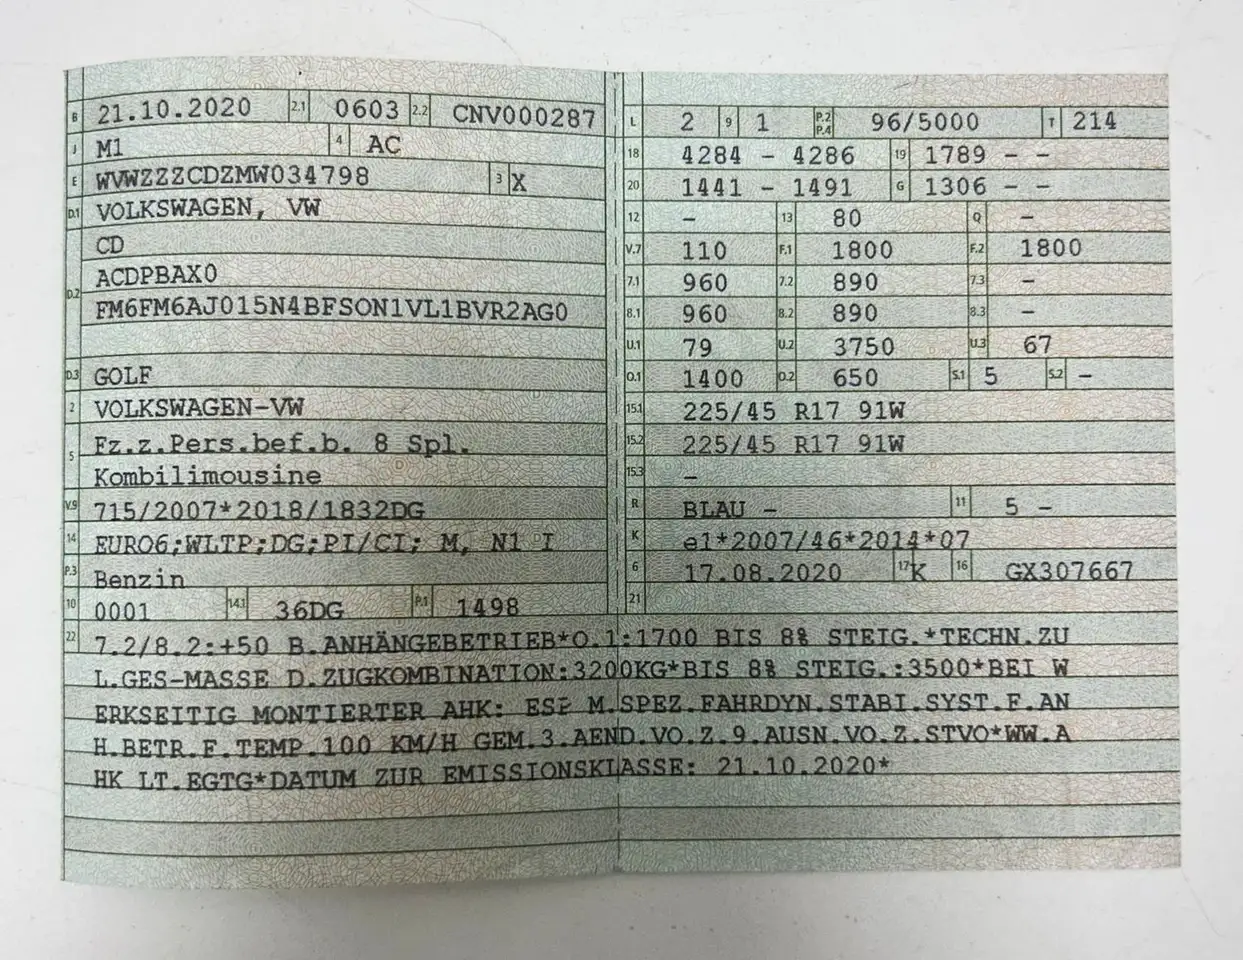 B 21.10.2020 2.1 0603 2.2 CNV000287
J M1 4 AC
E WVWZZZCDZMW034798 3 X
D.1 VOLKSWAGEN, VW
CD
D.2 ACDPBAX0
FM6FM6AJ015N4BFSON1VL1BVR2AG0
D.3 GOLF
2 VOLKSWAGEN-VW
5 Fz.z.Pers.bef.b. 8 Spl.
Kombilimousine
V.9 715/2007*2018/1832DG
14 EURO6;WLTP;DG;PI/CI; M, N1 I
P.3 Benzin
10 0001 14.1 36DG P.1 1498
L 2 9 1 P.2 P.4 96/5000 T 214
18 4284 - 4286 19 1789 - -
20 1441 - 1491 G 1306 - -
12 - 13 80 Q -
V.7 110 F.1 1800 F.2 1800
7.1 960 7.2 890 7.3 -
8.1 960 8.2 890 8.3 -
U.1 79 U.2 3750 U.3 67
O.1 1400 O.2 650 S.1 5 S.2 -
15.1 225/45 R17 91W
15.2 225/45 R17 91W
15.3 -
R BLAU - 11 5 -
K e1*2007/46*2014*07
6 17.08.2020 17 K 16 GX307667
21
22 7.2/8.2:+50 B.ANHÄNGEBETRIEB*O.1:1700 BIS 8% STEIG.*TECHN.ZU
L.GES-MASSE D.ZUGKOMBINATION:3200KG*BIS 8% STEIG.:3500*BEI W
ERKSEITIG MONTIERTER AHK: ESP M.SPEZ.FAHRDYN.STABI.SYST.F.AN
H.BETR.F.TEMP.100 KM/H GEM.3.AEND.VO.Z.9.AUSN.VO.Z.STVO*WW.A
HK LT.EGTG*DATUM ZUR EMISSIONSKLASSE: 21.10.2020*